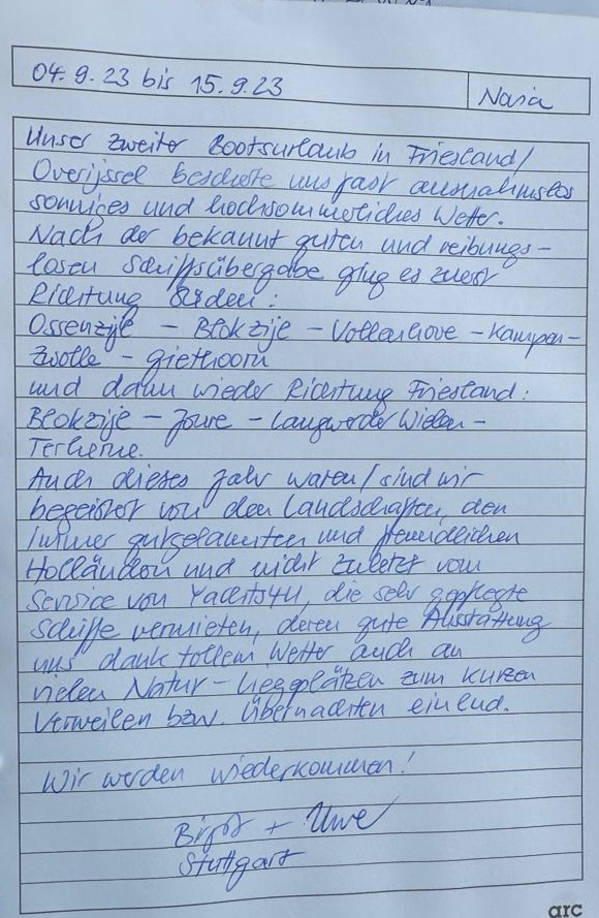 04.9.23 bis 15.9.23
Nasia
Unser zweiter Bootsurlaub in Friesland/
Overijssel bescherte uns fast ausnahmslos
sonniges und hochsommerliches Wetter.
Nach der bekannt guten und reibungs-
losen Schiffsübergabe ging es zuerst
Richtung Süden:
Ossenzijl - Blokzijl - Vollenhove - Kampen-
Zwolle - Giethoorn
und dann wieder Richtung Friesland:
Blokzijl - Joure - Langweerder Wielen -
Terherne.
Auch dieses Jahr waren/sind wir
begeistert von den Landschaften, den
immer gutgelaunten und freundlichen
Holländern und nicht zuletzt vom
Service von Yachts4U, die sehr gepflegte
Schiffe vermieten, deren gute Ausstattung
uns dank tollem Wetter auch an
vielen Natur-Liegeplätzen zum kurzen
Verweilen bzw. Übernachten einlud.
Wir werden wiederkommen!
Birgit + Uwe
Stuttgart
arc